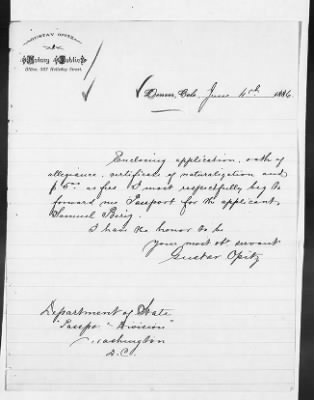 GUSTAV OPITZ
Notary Public
Office, 327 Holladay Street.
Denver, Colo. June 1886.
Enclosing application, oath of
allegiance, certificate of naturalization and
$5.00 as fees I most respectfully beg to
forward me Passport for the applicant,
Samuel
I have the honor to be
Your most obt servant
Gustav Opitz
Department of State
"Passport Division"
Washington
D.C.